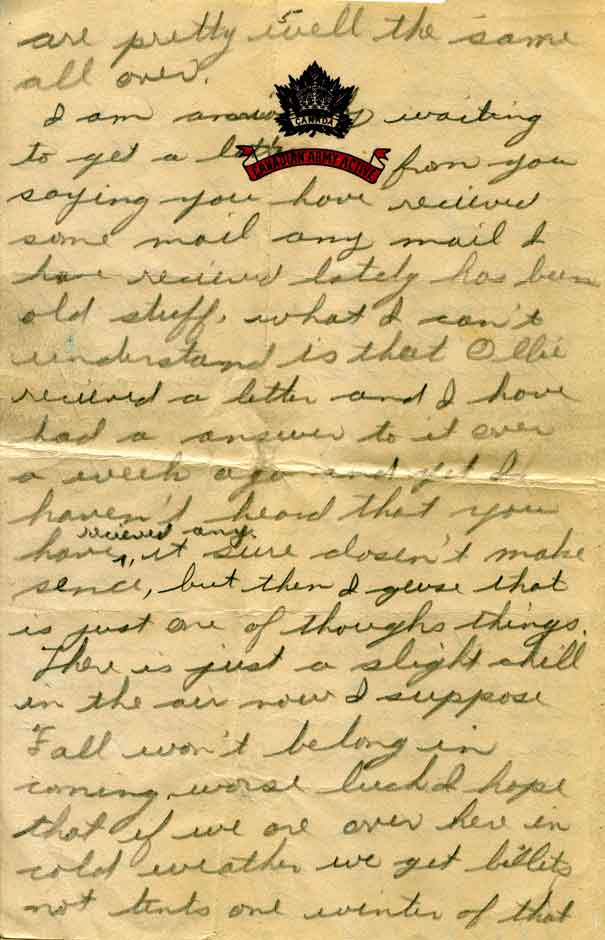 5
are pretty well the same
all over.
CANADA
I am waiting
CANADIAN ARMY ACTIVE
to get a from you
saying you have recieved
some mail any mail I
have recieved lately has been
old stuff, what I can't
understand is that Ollie
recieved a letter and I have
had a answer to it over
a week ago and yet I
haven't heard that you
recieved any.
have, it sure dosen't make
sence, but then I guse that
is just one of thoughs things.
There is just a slight chill
in the air now I suppose
Fall won't belong in
coming, worse luck I hope
that if we are over here in
cold weather we get billits
not tents one winter of that